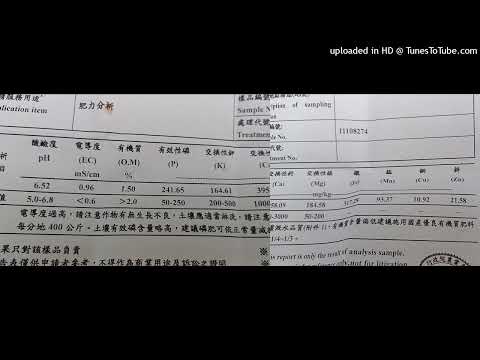 uploaded in HD @ TunesToTube.com
請服務用途
plication item
肥力分析
樣品編號
Sample N
處理代號
Treatment
ription of sampling
編號:
de No.:
11108274
tment No.:
酸鹼度 電導度 有機質 有效性磷 交換性鉀 交換性
pH (EC) (O.M) (P) (K) (C
mS/cm %
析
6.52 0.96 1.50 241.65 164.61 395
值 5.0-6.8 <0.6 >2.0 50-250 200-500 1000
電導度過高,請注意作物有無生長不良,土壤應適當淋洗,請注意
每分地 400 公斤,土壤有效磷含量略高,建議磷肥可依正常量減
果只對該樣品負責
告表僅供申請者參考,不得作為商業用途及訴訟之證明
交換性鈣 交換性鎂 鐵 錳 銅 鋅
(Ca) (Mg) (Cu) (Zn)
58.09 184.58 317.29 93.37 10.92 21.58
-3000 50-200
有機質含量偏低建議施用國產優良有機質肥料
1/4~1/3。
report is only the result of analysis sample.
not for litigation